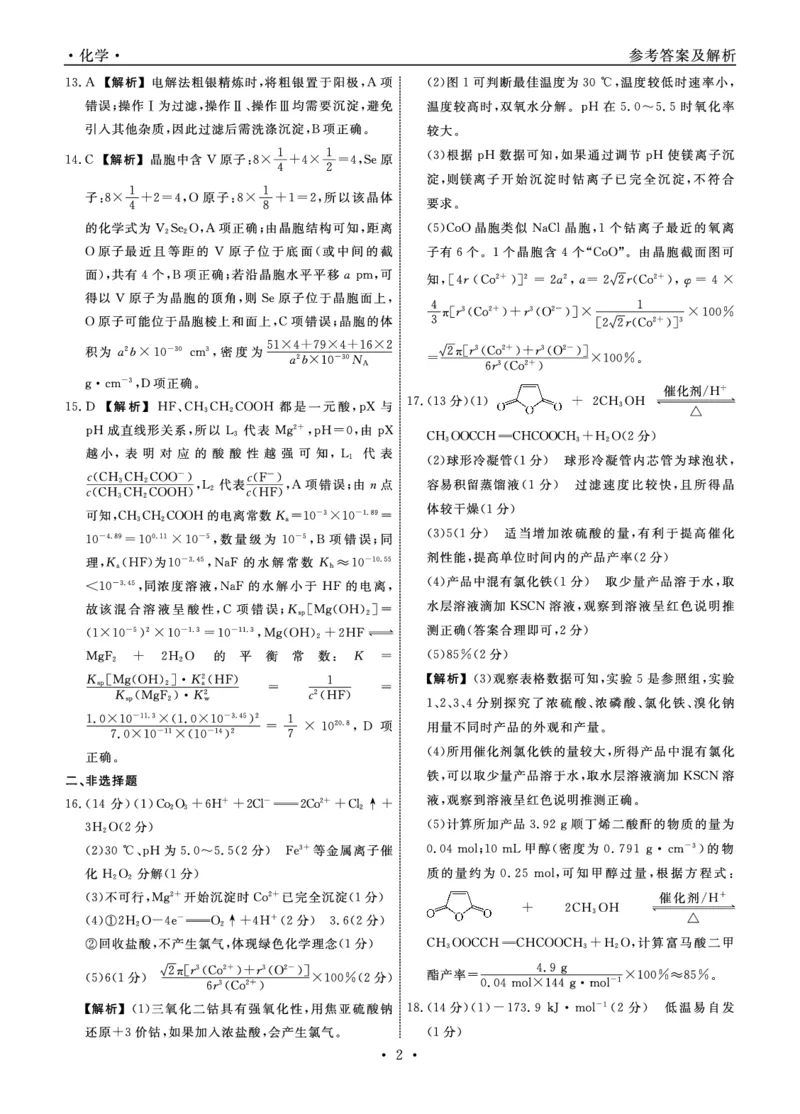 ·化学·
参考答案及解析
13.A 【解析】电解法粗银精炼时,将粗银置于阳极,A项
错误;操作Ⅰ为过滤,操作Ⅱ、操作Ⅲ均需要沉淀,避免
引入其他杂质,因此过滤后需洗涤沉淀,B项正确。
14.C 【解析】晶胞中含 V 原子:8×1/4+4×1/2=4,Se原
子:8×1/4+2=4,O 原子:8×1/8+1=2,所以该晶体
的化学式为 V₂Se₂O,A项正确;由晶胞结构可知,距离
O原子最近且等距的 V 原子位于底面(或中间的截
面),共有4个,B项正确;若沿晶胞水平平移 a pm,可
得以 V 原子为晶胞的顶角,则 Se原子位于晶胞面上,
O原子可能位于晶胞棱上和面上,C项错误;晶胞的体
积为 a²b×10⁻³⁰ cm³,密度为 (51×4+79×4+16×2)/(a²b×10⁻³⁰N_A)
g·cm⁻³,D项正确。
15.D 【解析】HF、CH₃CH₂COOH 都是一元酸,pX 与
pH成直线形关系,所以 L₃ 代表 Mg²⁺,pH=0,由 pX
越小,表明对应的酸酸性越强可知,L₁ 代表
c(CH₃CH₂COO⁻)/c(CH₃CH₂COOH),L₂ 代表c(F⁻)/c(HF),A项错误;由 n点
可知,CH₃CH₂COOH的电离常数Kₐ=10⁻³×10⁻¹·⁸⁹=
10⁻⁴·⁸⁹=10⁰·¹¹×10⁻⁵,数量级为 10⁻⁵,B项错误;同
理,Kₐ(HF)为10⁻³·⁴⁵,NaF 的水解常数 Kₕ≈10⁻¹⁰·⁵⁵
<10⁻³·⁴⁵,同浓度溶液,NaF 的水解小于 HF 的电离,
故该混合溶液呈酸性,C 项错误;Kₛₚ[Mg(OH)₂]=
(1×10⁻⁵)²×10⁻¹·³=10⁻¹¹·³,Mg(OH)₂+2HF⇌
MgF₂ + 2H₂O 的 平 衡 常 数: K =
Kₛₚ[Mg(OH)₂]·Kₐ²(HF)/(Kₛₚ(MgF₂)·K_w²) = 1/c²(HF) =
1.0×10⁻¹¹·³×(1.0×10⁻³·⁴⁵)²/(7.0×10⁻¹¹×(10⁻¹⁴)²) = 1/7 × 10²⁰·⁸,D 项
正确。
二、非选择题
16.(14 分)(1)Co₂O₃+6H⁺+2Cl⁻══2Co²⁺+Cl₂↑+
3H₂O(2分)
(2)30 ℃、pH为 5.0~5.5(2分) Fe³⁺等金属离子催
化 H₂O₂ 分解(1分)
(3)不可行,Mg²⁺开始沉淀时Co²⁺已完全沉淀(1分)
(4)①2H₂O-4e⁻══O₂↑+4H⁺(2分) 3.6(2分)
②回收盐酸,不产生氯气,体现绿色化学理念(1分)
(5)6(1分) √2π[r³(Co²⁺)+r³(O²⁻)]/6r³(Co²⁺)×100%(2分)
【解析】(1)三氧化二钴具有强氧化性,用焦亚硫酸钠
还原+3价钴,如果加入浓盐酸,会产生氯气。
(2)图1可判断最佳温度为30 ℃,温度较低时速率小,
温度较高时,双氧水分解。pH 在 5.0~5.5 时氧化率
较大。
(3)根据 pH 数据可知,如果通过调节 pH使镁离子沉
淀,则镁离子开始沉淀时钴离子已完全沉淀,不符合
要求。
(5)CoO晶胞类似 NaCl 晶胞,1个钴离子最近的氧离
子有6个。1个晶胞含4个“CoO”。由晶胞截面图可
知,[4r(Co²⁺)]² = 2a²,a=2√2r(Co²⁺),φ=4×
4/3π[r³(Co²⁺)+r³(O²⁻)]×1/[2√2r(Co²⁺)]³×100%
=√2π[r³(Co²⁺)+r³(O²⁻)]/6r³(Co²⁺)×100%。
17.(13分)(1) O O O + 2CH₃OH 催化剂/H⁺⇌△
CH₃OOCCH═CHCOOCH₃+H₂O(2分)
(2)球形冷凝管(1分) 球形冷凝管内芯管为球泡状,
容易积留蒸馏液(1分) 过滤速度比较快,且所得晶
体较干燥(1分)
(3)5(1分) 适当增加浓硫酸的量,有利于提高催化
剂性能,提高单位时间内的产品产率(2分)
(4)产品中混有氯化铁(1分) 取少量产品溶于水,取
水层溶液滴加 KSCN 溶液,观察到溶液呈红色说明推
测正确(答案合理即可,2分)
(5)85%(2分)
【解析】(3)观察表格数据可知,实验5是参照组,实验
1、2、3、4分别探究了浓硫酸、浓磷酸、氯化铁、溴化钠
用量不同时产品的外观和产量。
(4)所用催化剂氯化铁的量较大,所得产品中混有氯化
铁,可以取少量产品溶于水,取水层溶液滴加 KSCN溶
液,观察到溶液呈红色说明推测正确。
(5)计算所加产品3.92 g顺丁烯二酸酐的物质的量为
0.04 mol;10 mL甲醇(密度为 0.791 g·cm⁻³)的物
质的量约为 0.25 mol,可知甲醇过量,根据方程式:
O O O + 2CH₃OH 催化剂/H⁺⇌△
CH₃OOCCH═CHCOOCH₃+H₂O,计算富马酸二甲
酯产率=4.9 g/(0.04 mol×144 g·mol⁻¹)×100%≈85%。
18.(14分)(1)-173.9 kJ·mol⁻¹(2分) 低温易自发
(1分)
· 2 ·